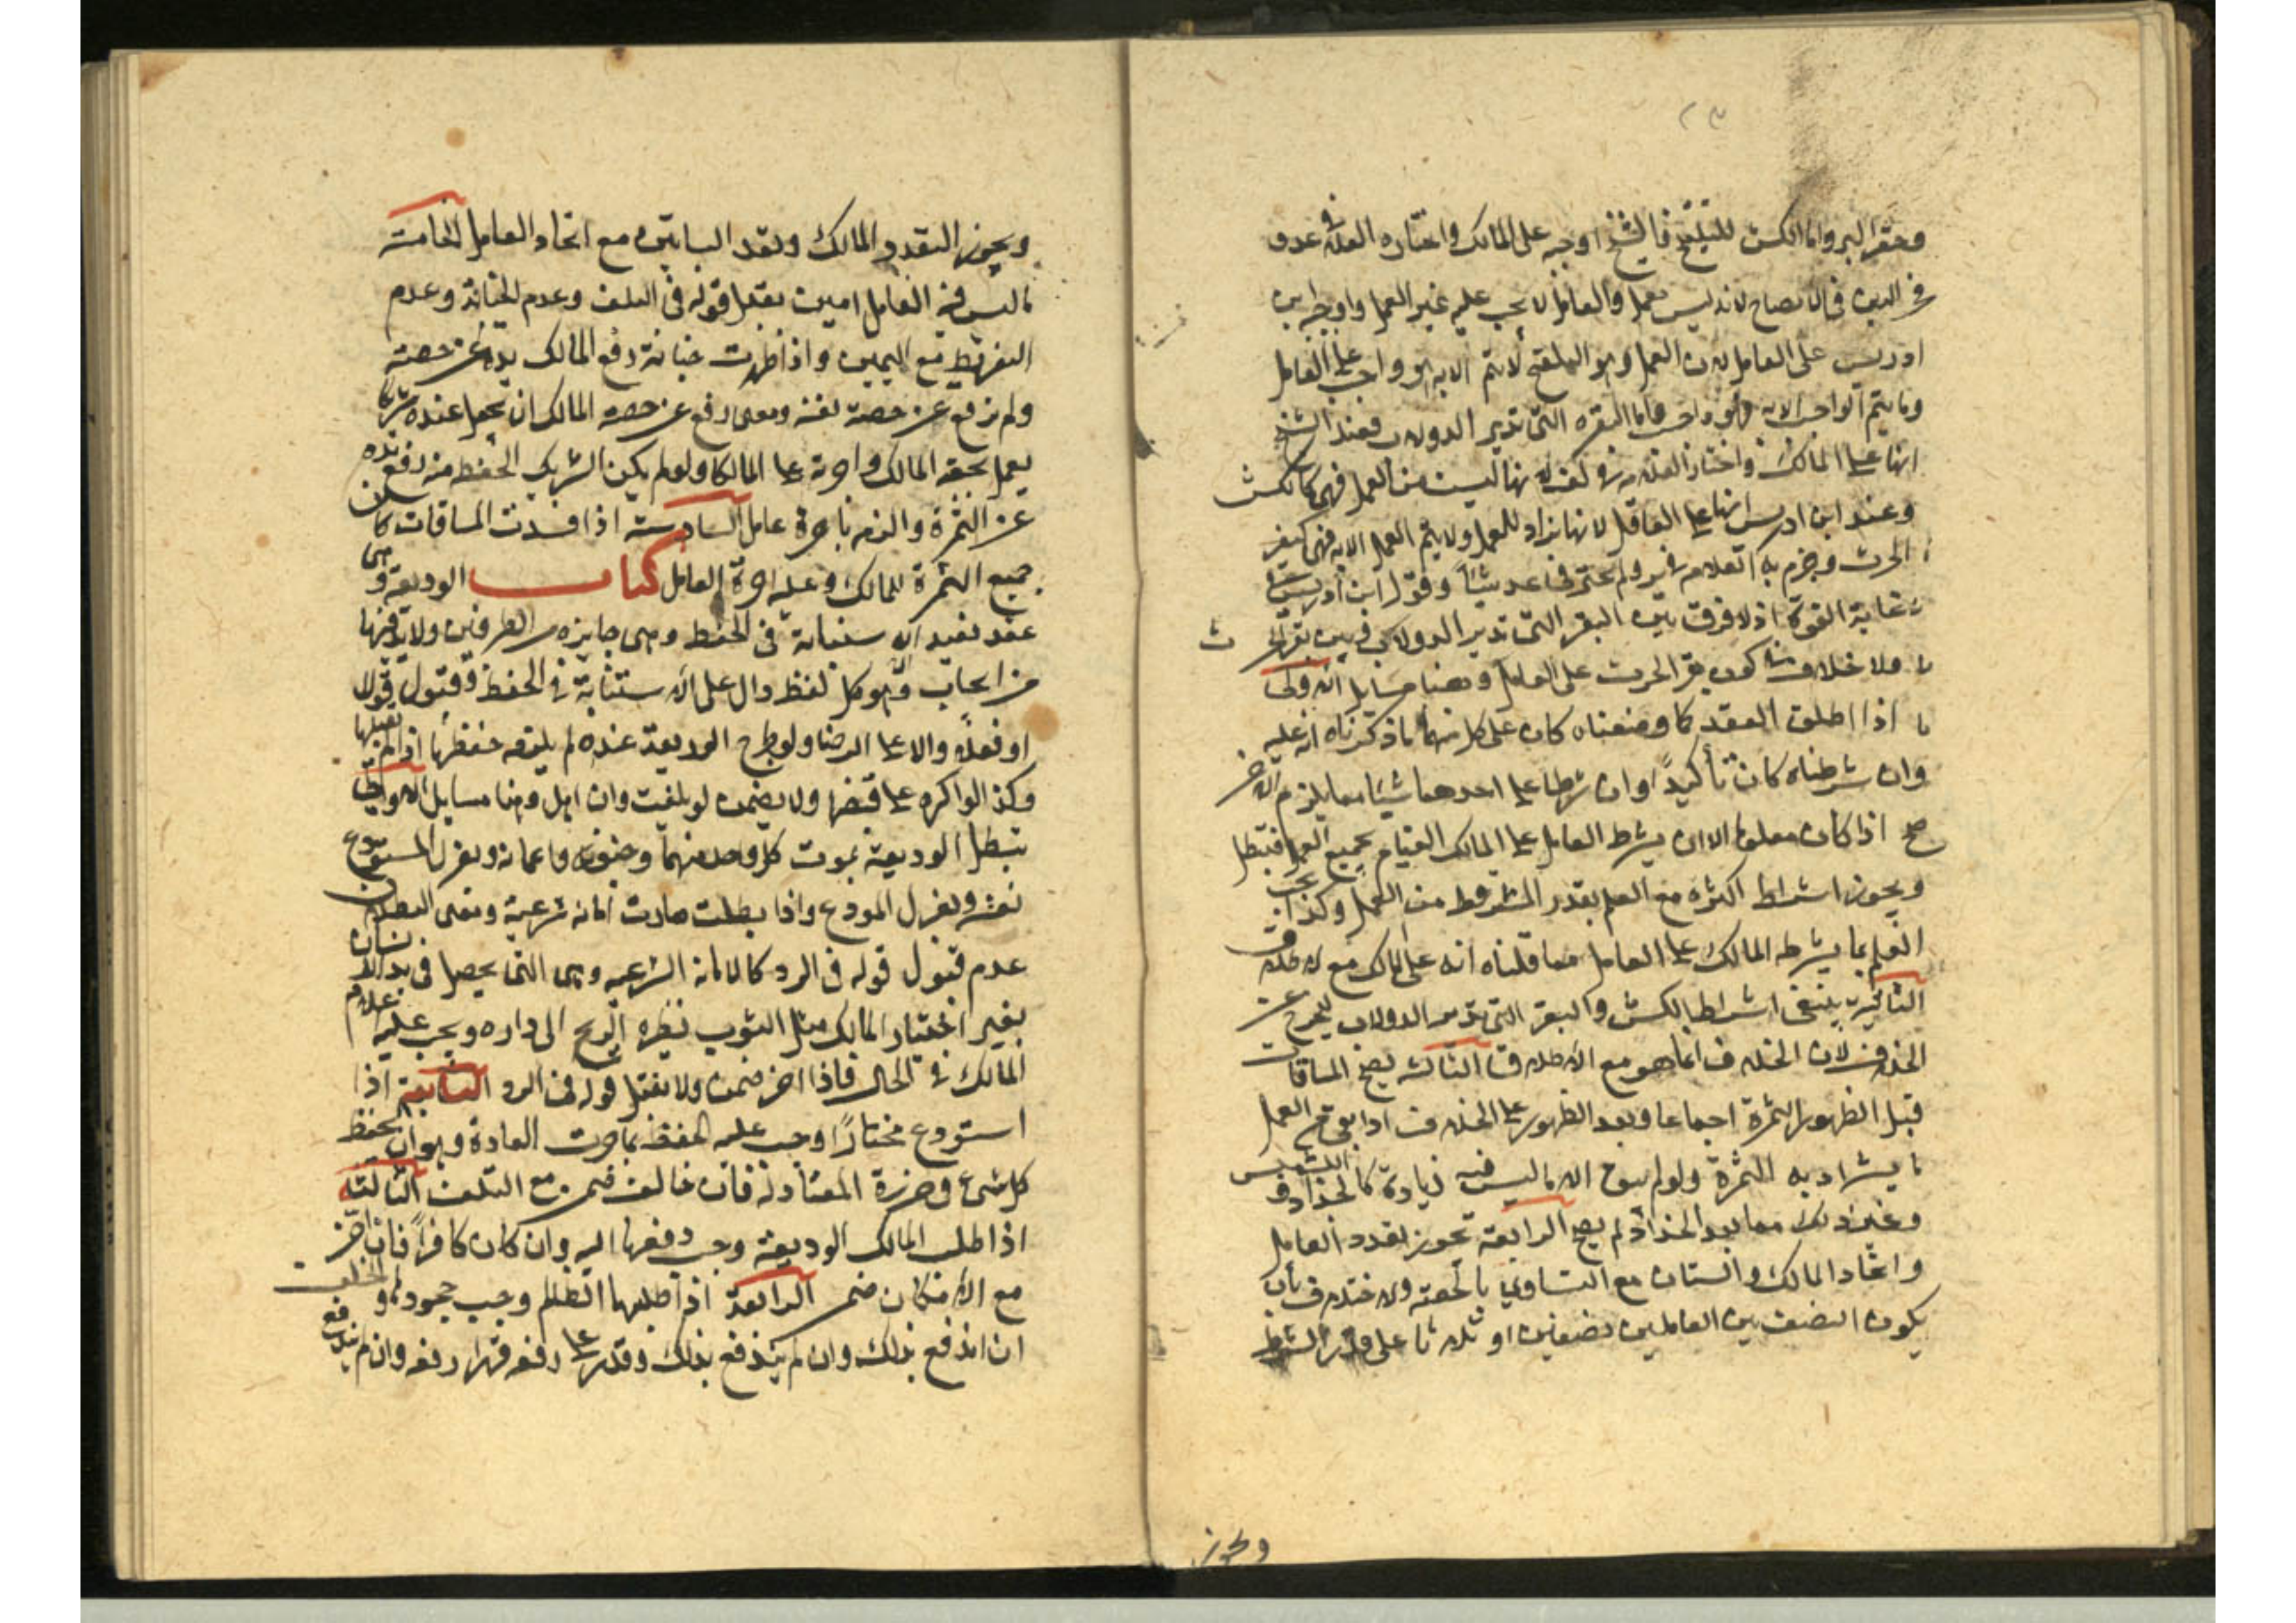 ٢٣
وحفر البير واما الكش للتلقيح فالشيخ اوجبه على المالك واختاره العلامة في عدو
فخر الدين في الايضاح لانه ليس بعمل والعامل لا يجب عليه غير العمل واوجبه ابن
ادريس على العامل لان العمل وهو التلقيح لا يتم الا به وهو واجب على العامل
وما يتم الواجب الا به فهو واجب واما البقره التي تدير الدولاب فعند الشيخ
انها على المالك واختار العلامه في لانها ليست من العمل فهي كالكش
وعند ابن ادريس انها على العامل لانها تراد للعمل ولا يتم العمل الا به فهي كبقر
الحرث وجزم به العلامه في ولم يختر في عد شيئا وقول ابن ادريس
في غاية القوة اذ لا فرق بين البقر التي تدير الدولاب وبين بقر الحرث
فلا خلاف في كون بقر الحرث على العامل وهنا مسايل الاولى
اذا اطلق العقد كما وصفناه كان على كل منهما ما ذكرناه انه عليه
وان شرطناه كان تأكيدا وان شرطا على احدهما شيئا مما يلزم الاخر
صح اذا كان معلوما الا ان يشرط العامل على المالك القيام بجميع العمل فتبطل
ويجوز اشتراط اكثره مع العلم بقدر المشروط من العمل وكذا يجب
العلم بما يشرطه المالك على العامل مما قلناه انه على المالك مع الاطلاق
الثانية ينبغي اشتراط الكش والبقر التي تدير الدولاب ليخرج عن
الخلاف لان الخلاف انما هو مع الاطلاق الثالثة يصح المساقات
قبل الظهور الثمرة اجماعا وبعد الظهور على الخلاف اذا بقي من العمل
ما يستزاد به الثمرة ولو لم يبق الا ما ليس فيه زيادة كالجذاذ والتشميس
وغير ذلك مما بعد الجذاذ لم يصح الرابعة يجوز تعدد العامل
واتحاد المالك والبستان مع التساوي بالحصة والاختلاف بان
يكون النصف بين العاملين نصفين او ثلاثا على قدر الشرط
ويجوز
ويجوز التعدد المالك وتعدد البساتين مع اتحاد العامل الخامسة
ما ليس فيه العامل امين يقبل قوله في التلف وعدم الخيانة وعدم
التفريط مع اليمين واذا ظهرت خيانة رفع المالك يده عن حصته
ولم ترفع عن حصة نفسه ومعنى رفع عن حصة المالك ان يجعل عنده شريكا
يعمل بحصة المالك واجرته على المالك ولو لم يكن الشريك الحفظ منه رفع يده
عن الثمرة والزم باجرة عامل السادسة اذا فسدت المساقات كان
جميع الثمرة للمالك وعليه اجرة العامل كتاب الوديعة وهي
عقد تفيد الاستنابة في الحفظ وهي جايزه من الطرفين ولا بد فيها
من ايجاب وهو كل لفظ دال على الاستنابة في الحفظ وقبول قولا
او فعلا والا على الرضا ولو طرح الوديعة عنده لم يلزمه حفظها اذا لم يقبلها
وكذا لو اكره على قبضها ولا يضمن لو تلفت وان اهمل وهنا مسايل الاولى
تبطل الوديعة بموت كل واحد منهما وجنونه واغمائه وبعزل المستودع
نفسه وبعزل المودع واذا بطلت صارت امانه شرعية ومعنى البطلان
عدم قبول قوله في الرد كالامانة الشرعيه وهي التي يحصل في يد الانسان
بغير اختيار المالك مثل الثوب تطيره الريح الى داره ويجب عليه اعلام
المالك في الحال فاذا اخر ضمن ولا يقبل قوله في الرد الثانية اذا
استودع مختارا وجب عليه الحفظ بما جرت العادة وهو ان يحفظ
كل شيء في حرزه المعتاد له فان خالف ضمن مع التلف الثالثه
اذا طلب المالك الوديعة وجب دفعها اليه وان كان كافرا فان اخر
مع الامكان ضمن الرابعة اذا طلبها الظالم وجب جحودها والحلف
ان اندفع بذلك وان لم يندفع بذلك وقدر على دفعه قهرا دفعه وان لم يندفع